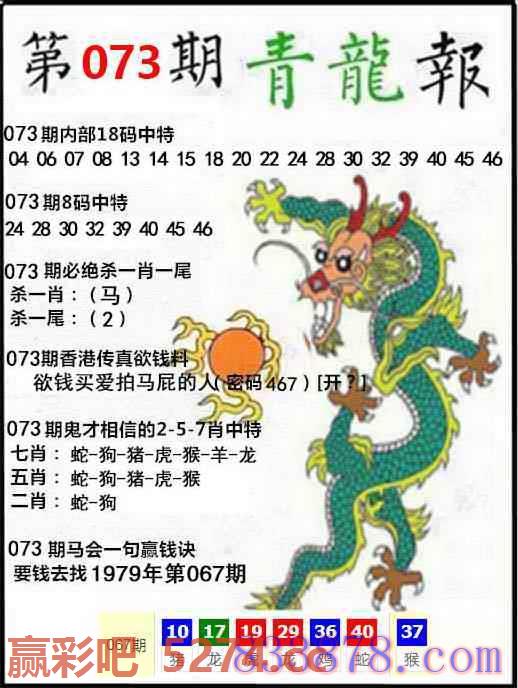 第073期青龍報
073期内部18码中特
04 06 07 08 13 14 15 18 20 22 24 28 30 32 39 40 45 46
073期8码中特
24 28 30 32 39 40 45 46
073期必绝杀一肖一尾
杀一肖：（马）
杀一尾：（2）
073期香港传真欲钱料
欲钱买爱拍马屁的人（密码467）[开？]
073期鬼才相信的2-5-7肖中特
七肖：蛇-狗-猪-虎-猴-羊-龙
五肖：蛇-狗-猪-虎-猴
二肖：蛇-狗
073期马会一句赢钱诀
要钱去找1979年第067期
067期 10 17 19 29 36 40 37
猪 龙 虎 龙 鸡 蛇 猴